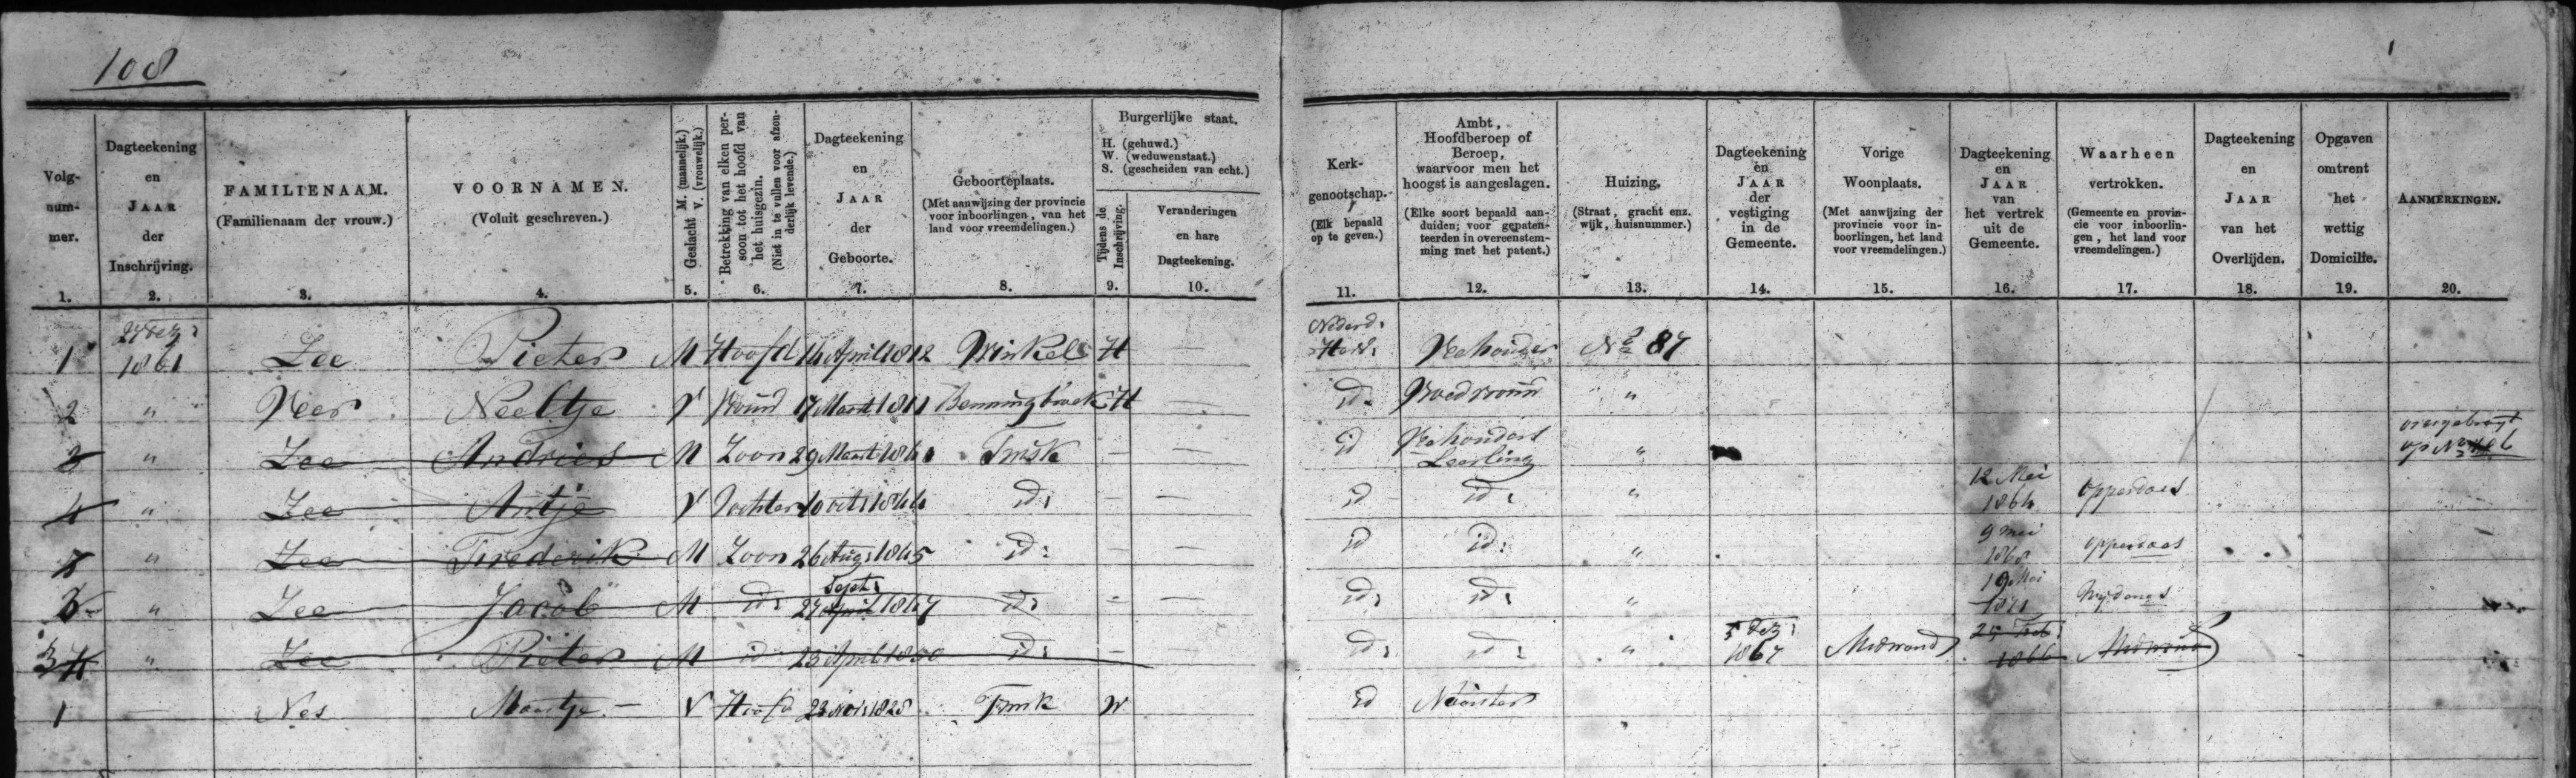 108
Volg-
num-
mer.
1.
Dagteekening
en
JAAR
der
Inschrijving.
2.
FAMILIENAAM.
(Familienaam der vrouw.)
3.
VOORNAMEN.
(Voluit geschreven.)
4.
Geslacht M. (mannelijk.)
V. (vrouwelijk.)
5.
Betrekking van elken per-
soon tot het hoofd van
het huisgezin.
(Niet in te vullen voor afzon-
derlijk levende.)
6.
Dagteekening
en
JAAR
der
Geboorte.
7.
Geboorteplaats.
(Met aanwijzing der provincie
voor inboorlingen, van het
land voor vreemdelingen.)
8.
Burgerlijke staat.
H. (gehuwd.)
W. (weduwenstaat.)
S. (gescheiden van echt.)
Tijdens de
Inschrijving.
9.
Veranderingen
en hare
Dagteekening.
10.
Kerk-
genootschap.
(Elk bepaald
op te geven.)
11.
Ambt,
Hoofdberoep of
Beroep,
waarvoor men het
hoogst is aangeslagen.
(Elke soort bepaald aan-
duiden; voor gepaten-
teerden in overeenstem-
ming met het patent.)
12.
Huizing,
(Straat, gracht enz.
wijk, huisnummer.)
13.
Dagteekening
en
JAAR
der
vestiging
in de
Gemeente.
14.
Vorige
Woonplaats.
(Met aanwijzing der
provincie voor in-
boorlingen, het land
voor vreemdelingen.)
15.
Dagteekening
en
JAAR
van
het vertrek
uit de
Gemeente.
16.
Waarheen
vertrokken.
(Gemeente en provin-
cie voor inboorlin-
gen, het land voor
vreemdelingen.)
17.
Dagteekening
en
JAAR
van het
Overlijden.
18.
Opgaven
omtrent
het
wettig
Domicilie.
19.
AANMERKINGEN.
20.
1 27 Dez: 1861 Zee Pieter M Hoofd 14 April 1812 Winkel H — Nederd: Herv: Veehouder No 87
2 " Veer Neeltje V Vrouw 17 Maart 1811 Benningbroek H — id. "
3 " Zee Andries M Zoon 29 Maart Twisk — — id Veehouders Leerling " overgebragt op No
4 " Zee Antje V Dochter id: — — id id: " 12 Mei 1864 Opperdoes
Zee Frederik M Zoon 26 Aug: 1845 id: — — id id: " 9 Mei 1868 Opperdoes
" Zee Jacob M id: 27 April Sept: 1847 id: - — id: id: " 19 Mei 1871
" Zee Pieter M id: 23 April 1850 id: — id: id: " 5 Dez: 1867 Midwoud 25 Feb: 1866 Midwoud
1 — Nes Maartje — V Hoofd 23 Nov: 1828 Twisk W id Naaister